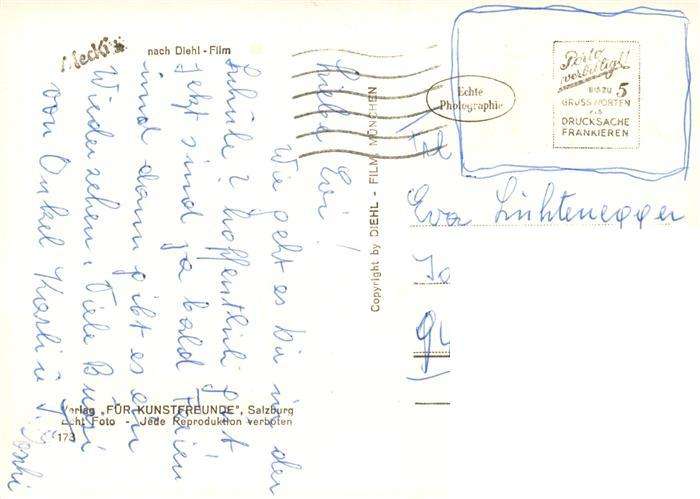 Mecki
nach Diehl - Film
Liebe Evi!
Wie geht es Dir in der
Schule? Hoffentlich gut
jetzt sind ja bald Ferien
und dann gibt es ein
Wiedersehen. Viele Bussi
von Onkel Karli u. T.
Verlag „FÜR KUNSTFREUNDE", Salzburg
Echt Foto - Jede Reproduktion verboten
173
Copyright by DIEHL - FILM, MÜNCHEN
Echte
Photographie
Porto
verbilligt!
BIS ZU 5
GRUSSWORTEN
ALS
DRUCKSACHE
FRANKIEREN
Eva Lichtenegger